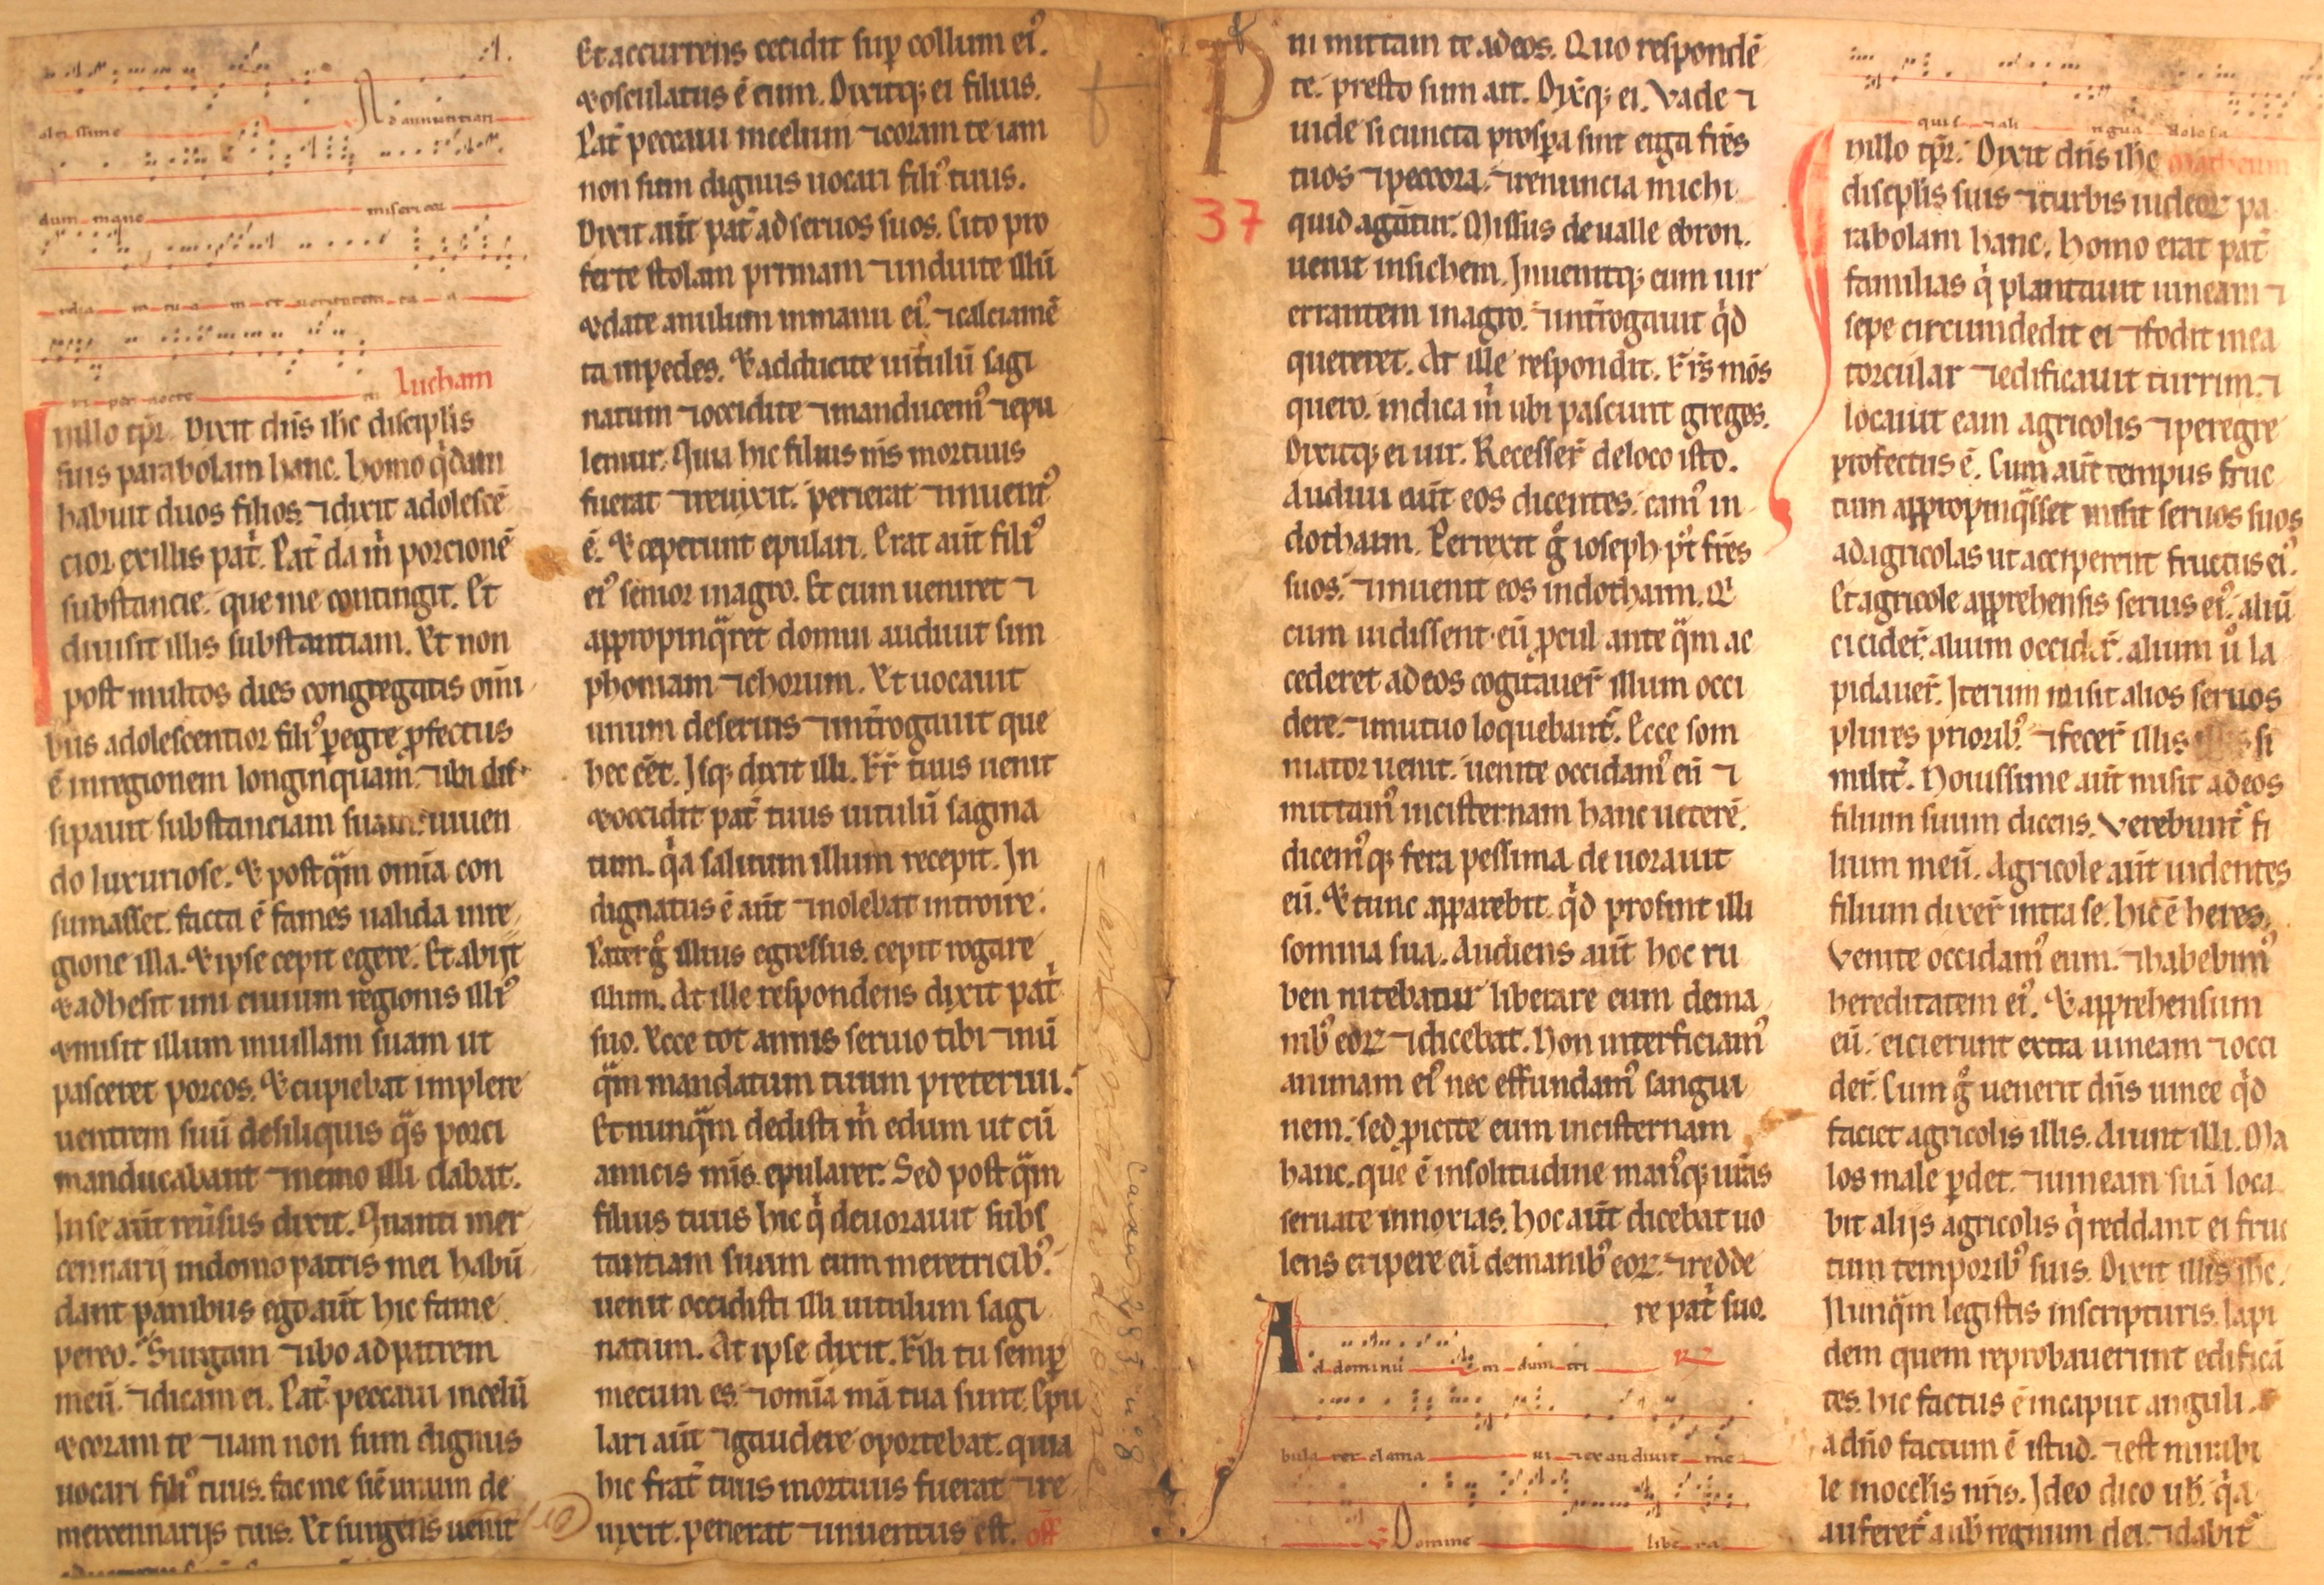 altissime Ad annuntian
dum mane misericor
rdia m tu a m et ueritatem tu a
m per nocte m lucham
Inillo tp̄r. Dixit dn̄s ih̄c discipl̄is
suis parabolam hanc. homo q̇dam
habuit duos filios. ⁊dixit adolescē
cior exillis pat̄. Pat̄ da m̄ porcionē
substancie. que me contingit. Et
diuisit illis substantiam. Et non
post multos dies congregatis om̄i
bus adolescentior fili᾿ ꝑegre ꝓfectus
ē inregionem longinquam. ⁊ubi dis
sipauit substanciam suam. uiuen
do luxuriose. & postq̄m om̄ia con
sumasset. facta ē fames ualida inre
gione illa. & ipse cepit egere. Et abijt
& adhesit uni ciuium regionis illi᾿
& misit illum inuillam suam ut
pasceret porcos. & cupiebat implere
uentrem suū desiliquis q̄s porci
manducabant ⁊nemo illi dabat.
Inse aūt reūsus dixit. Quanti mer
cennarij indomo patris mei habū
dant panibus ego aūt hic fame
pereo. Surgam ⁊ibo adpatrem
meū. ⁊dicam ei. Pat̄ peccaui incelū
& coram te ⁊iam non sum dignus
uocari fili᾿ tuus. fac me sic̄ unum de
mercennarijs tuis. Et surgens uenit
Et accurrens cecidit suꝑ collum ei᾿.
& osculatus ē eum. Dixitq; ei filius.
Pat̄ peccaui incelum ⁊coram te iam
non sum dignus uocari fili᾿ tuus.
Dixit aūt pat̄ ad seruos suos. Cito pro
ferte stolam primam ⁊induite illū
& date anulum inmanu ei᾿. ⁊calciamē
ta inpedes. & adducite uitulū sagi
natum ⁊occidite ⁊manducem᾿ ⁊epu
lemur. Quia hic filius m̄s mortuus
fuerat ⁊reuixit. perierat ⁊inuent᾿
ē. & ceperunt epulari. Erat aūt fili᾿
ei᾿ senior inagro. Et cum ueniret ⁊
appropinq̄ret domui audiuit sim
phoniam ⁊chorum. Et uocauit
unum deseruis ⁊int̄rogauit que
hec eēt. Isq; dixit illi. Fr̄ tuus uenit
& occidit pat̄ tuus uitulū sagina
tum. q̇a saluum illum recepit. In
dignatus ē aūt ⁊nolebat introire.
Pater g̊ illius egressus. cepit rogare
illum. At ille respondens dixit pat̄
suo. Ecce tot annis seruio tibi ⁊nū
q̄m mandatum tuum preteriui.
Et nunq̄m dedisti m̄ edum ut cū
amicis m̄is epularer. Sed postq̄m
filius tuus hic q̇ deuorauit subs
tantiam suam cum meretricib᾿.
uenit occidisti illi uitulum sagi
natum. At ipse dixit. Fili tu semꝑ
mecum es. ⁊om̄ia m̄a tua sunt. Epu
lari aūt ⁊gaudere oportebat. quia
hic frat̄ tuus mortuus fuerat ⁊re
uixit. perierat ⁊inuentus est. off̄
P
37
ni mittam te adeos. Quo respondē
te. presto sum ait. Dix̄q; ei. Vade ⁊
uide si cuncta prosꝑa sint erga fr̄es
tuos ⁊peccora. ⁊renuncia michi
quid agātur. Missus deualle ebron.
uenit insichem. Inuenitq; eum uir
errantem inagro. ⁊int̄rogauit q̇d
quereret. At ille respondit. Fr̄s mōs
quero. indica m̄ ubi pascunt greges.
Dixitq; ei uir. Recesser̄ deloco isto.
Audiui aūt eos dicentes. eam᾿ in
dothaim. Perrexit g̊ ioseph p᾿t fr̄es
suos. ⁊inuenit eos indothaim. Q
cum uidissent eū ꝓcul ante q̄m ac
cederet adeos cogitauer̄ illum occi
dere. ⁊mutuo loquebant᾿. Ecce som
niator uenit. uenite occidam᾿ eū ⁊
mittam᾿ incisternam hanc ueterē.
dicem᾿q; fera pessima deuorauit
eū. & tunc apparebit q̇d prosint illi
somnia sua. Audiens aūt hoc ru
ben nitebatur liberare eum dema
nib᾿ eoꝝ ⁊dicebat. Non interficiam᾿
animam ei᾿ nec effundam᾿ sangui
nem. sed ꝓicite eum incisternam
hanc. que ē insolitudine man᾿q; ur̄as
seruate innoxias. hoc aūt dicebat uo
lens eripere eū demanib᾿ eoꝝ. ⁊redde
re pat̄ suo.
Ad dominū dum tri
bula rer clama ui ⁊exaudiuit me
V Domine libe ra
qui l ⁊ali ngua dolosa
Inillo tp̄r. Dixit dn̄s ih̄c
discipl̄is suis ⁊turbis iudeoꝝ pa
rabolam hanc. homo erat pat̄
familias q̇ plantauit uineam ⁊
sepe circumdedit ei ⁊fodit in ea
torcular ⁊edificauit turrim. ⁊
locauit eam agricolis ⁊peregre
profectus ē. Cum aūt tempus fruc
tum appropinq̄sset misit seruos suos
ad agricolas ut acciperent fructus ei᾿.
Et agricole apprehensis seruis ei᾿. aliū
cicider̄. alium occider̄. alium ů la
pidauer̄. Iterum misit alios seruos
plures priorib᾿. ⁊fecer̄ illis si
milit᾿. Nouissime aūt misit adeos
filium suum dicens. Verebunt᾿ fi
lium meū. Agricole aūt uidentes
filium dixer̄ intra se. hic ē heres.
Venite occidam᾿ eum. ⁊habebim᾿
hereditatem ei᾿. & apprehensum
eū. eicierunt extra uineam ⁊occi
der̄. Cum g̊ uenerit dn̄s uinee q̇d
faciet agricolis illis. Aiunt illi. Ma
los male ꝑdet. ⁊uineam suā loca
bit alijs agricolis q̇ reddant ei fruc
tum temporib᾿ suis. Dixit illis ih̄c.
Nunq̄m legistis inscripturis. lapi
dem quem reprobauerunt edificā
tes. hic factus ē incaput anguli.
adn̄o factum ē istud. ⁊est mirabi
le inocclis nr̄is. Ideo dico ub̄. q̇a
auferet᾿ aub̄ regnum dei. ⁊dabit᾿